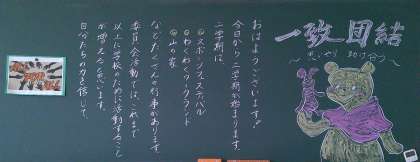 一致団結
～思いやり 助け合う～
おはようございます!!
今日から二学期が始まります。
二学期は、
◎スポーツフェスティバル
◎わくわくワークランド
◎山の家
などたくさんの行事があります。
委員会活動では、これまで
以上に学校のために活動すること
が増えると思います。
自分たちの力を信じて、